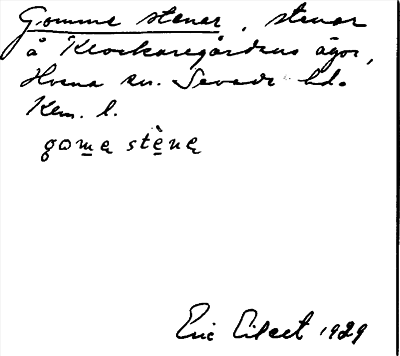 Gomme stenar, stenar
å Klockaregårdens ägor,
Hvena sn. Sevede hd.
Kem. l.
gomę stènę
Eric Elgert 1929